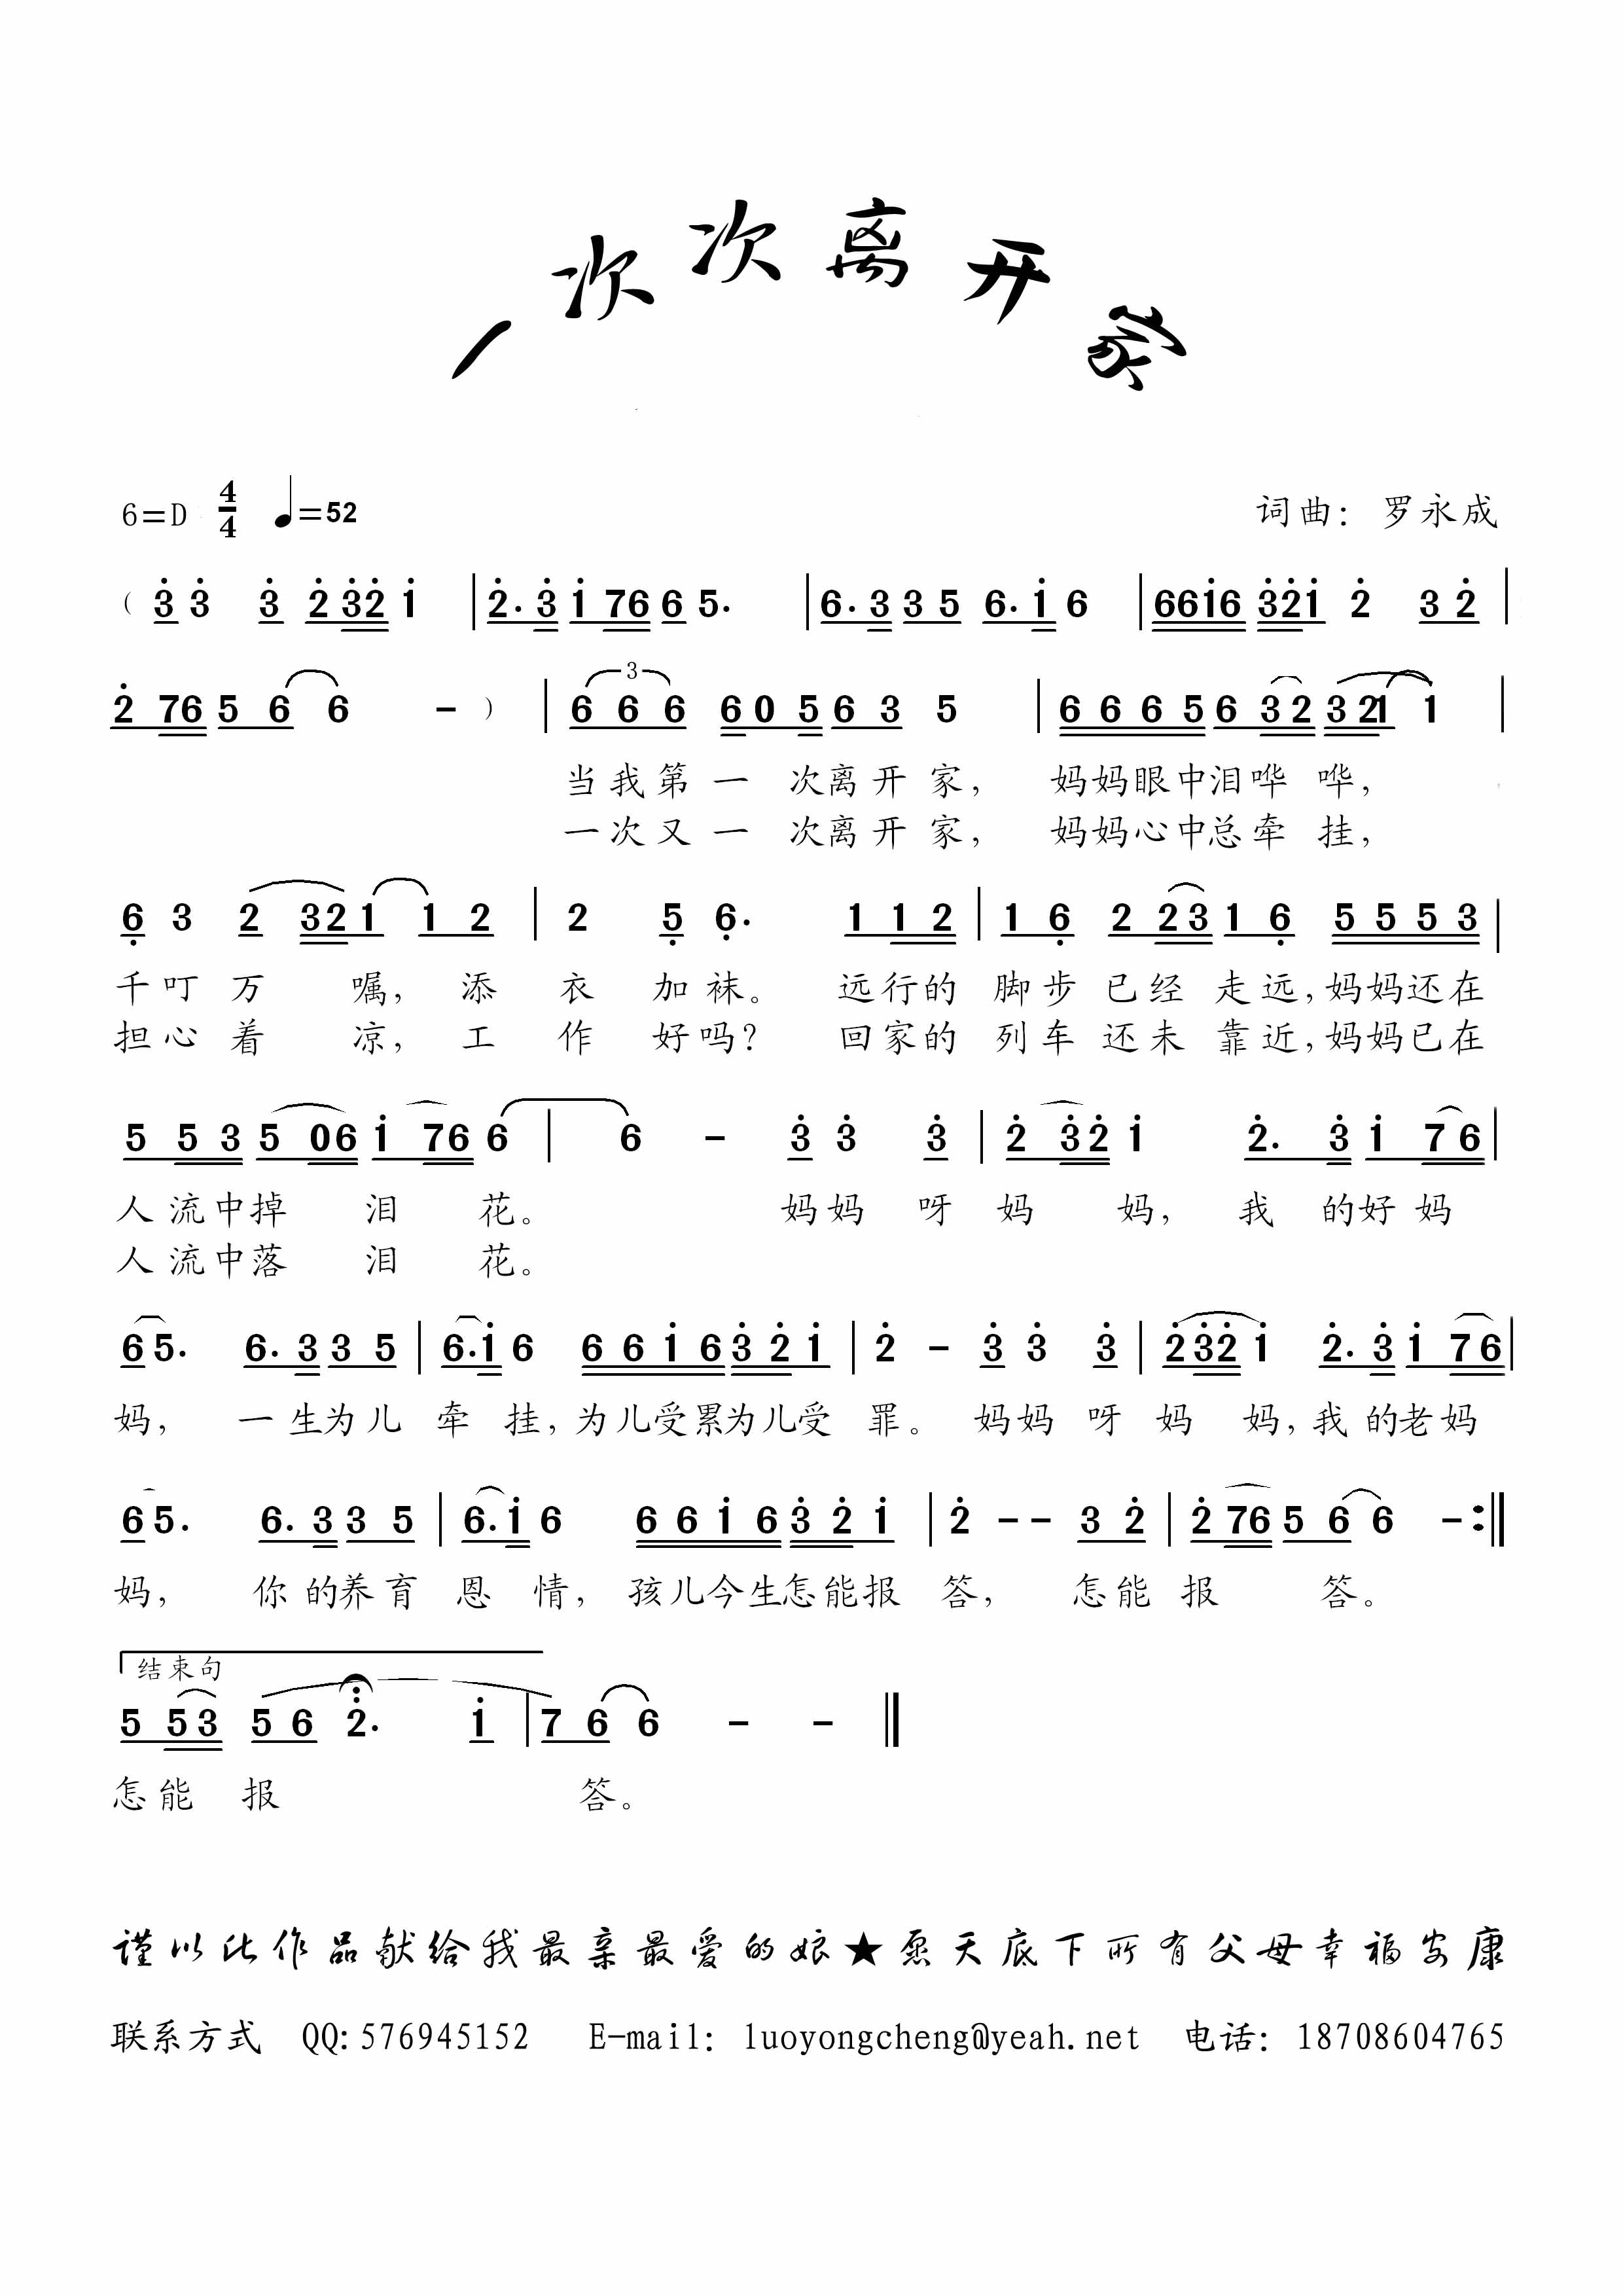 一次次离开家
6=D 4/4 ♩=52 词�：罗永成
（ 3 3 3 2 3 2 1 | 2. 3 1 7 6 6 5. | 6. 3 3 5 6. 1 6 | 6 6 1 6 3 2 1 2 3 2 |
2 7 6 5 6 6 - ） | 3 6 6 6 6 0 5 6 3 5 | 6 6 6 5 6 3 2 3 2 1 1 |
当我第一 次离开家， 妈妈眼中泪哗 哗，
一次又一 次离开家， 妈妈心中总牵 挂，
6 3 2 3 2 1 1 2 | 2 5 6. 1 1 2 | 1 6 2 2 3 1 6 5 5 5 3 |
千叮万 嘱， 添 衣 加袜。 远行的 脚步已经 走远，妈妈还在
担心着 凉， 工 作 好吗？ 回家的 列车还未 靠近，妈妈已在
5 5 3 5 0 6 1 7 6 6 | 6 - 3 3 3 | 2 3 2 1 2. 3 1 7 6 |
人流中掉 泪 花。 妈妈 呀 妈 妈， 我 的好妈
人流中落 泪 花。
6 5. 6. 3 3 5 | 6. 1 6 6 6 1 6 3 2 1 | 2 - 3 3 3 | 2 3 2 1 2. 3 1 7 6 |
妈， 一生为儿 牵 挂，为儿受累为儿受 罪。 妈妈 呀 妈 妈，我的老妈
6 5. 6. 3 3 5 | 6. 1 6 6 6 1 6 3 2 1 | 2 - - 3 2 | 2 7 6 5 6 6 - :||
妈， 你的养育 恩 情，孩儿今生怎能报 答， 怎能 报 答。
结束句
5 5 3 5 6 2. 1 | 7 6 6 - - ||
怎能 报 答。
谨以此作品献给我最亲最爱的娘★愿天底下所有父母幸福安康
联系方式 QQ：576945152 E-mail：luoyongcheng@yeah.net 电话：18708604765